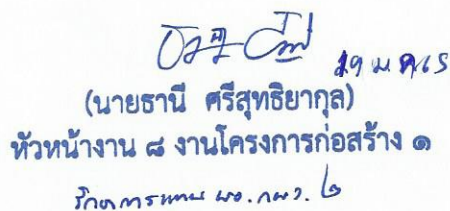 19 ม.ค. 65
(นายธานี ศรีสุทธิยากุล)
หัวหน้างาน ๘ งานโครงการก่อสร้าง ๑
รักษาการแทน ผอ.กผว. ๒